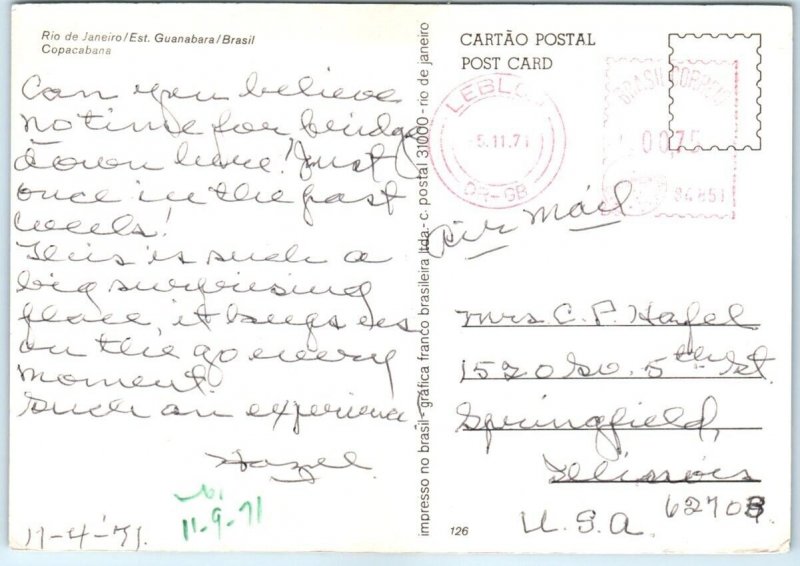 Rio de Janeiro/Est. Guanabara/Brasil
Copacabana
Can you believe
no time for bridge
down here! Just
once in the past
week!
This is such a
big surprising
place, it keeps us
on the go every
moment.
Such an experience
Hazel
11-4-71
11-9-71
impresso no brasil - gráfica franco brasileira ltda. - c. postal 31000 - rio de janeiro
CARTÃO POSTAL
POST CARD
LEBLO
5.11.71
DR-GB
BRASIL CORREIO
0075
Air Mail
Mrs C. P. Hafel
1520 So. 5th St.
Springfield,
Illinois
62703
U.S.A.
126